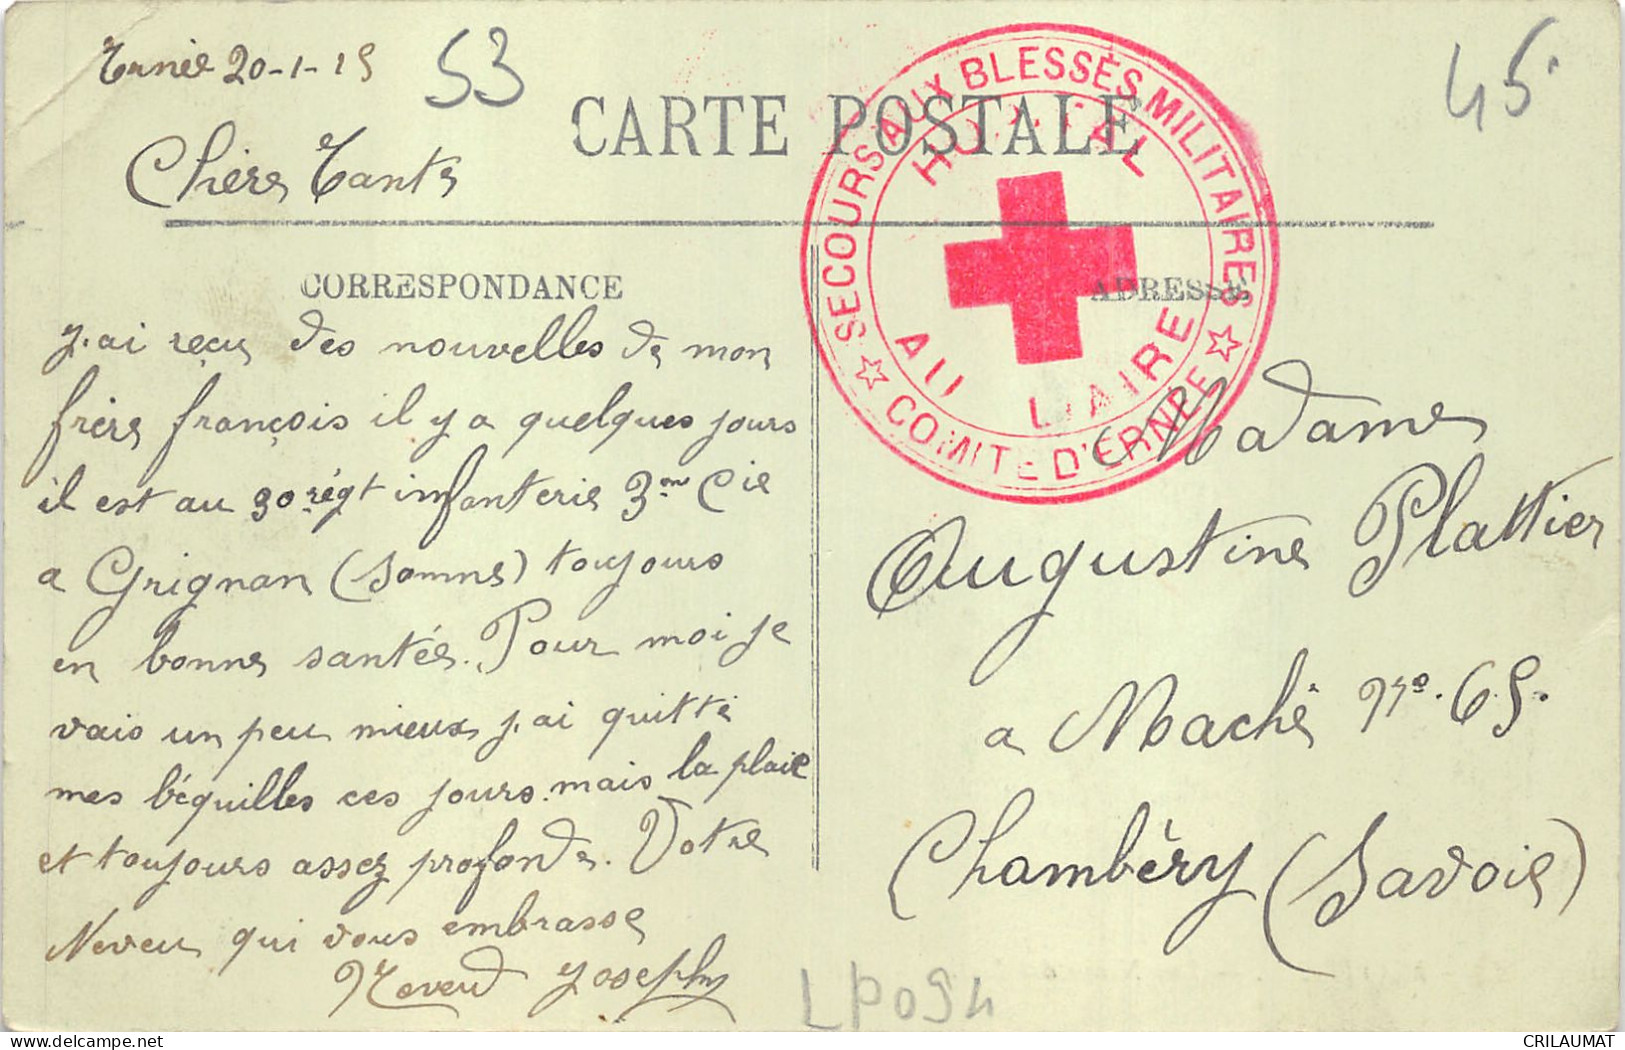 Ernée 20-1-15
53
45
CARTE POSTALE
Chère Tante
SECOURS AUX BLESSÉS MILITAIRES
HOPITAL
AUXILIAIRE
COMITÉ D'ERNÉE
CORRESPONDANCE
ADRESSE
j.ai reçu des nouvelles de mon
frère françois il y a quelques jours
il est au 30 régt infanterie 3me Cie
a Grignan (Somme) toujours
en bonne santée. Pour moi je
vais un peu mieux j.ai quitté
mes béquilles ces jours. mais la plaie
et toujours assez profonde. Votre
Neveu qui vous embrasse
Joseph
Madame
Augustine Plattier
a Maché No. 65.
Chambéry (Savoie)
LP094
CRILAUMAT